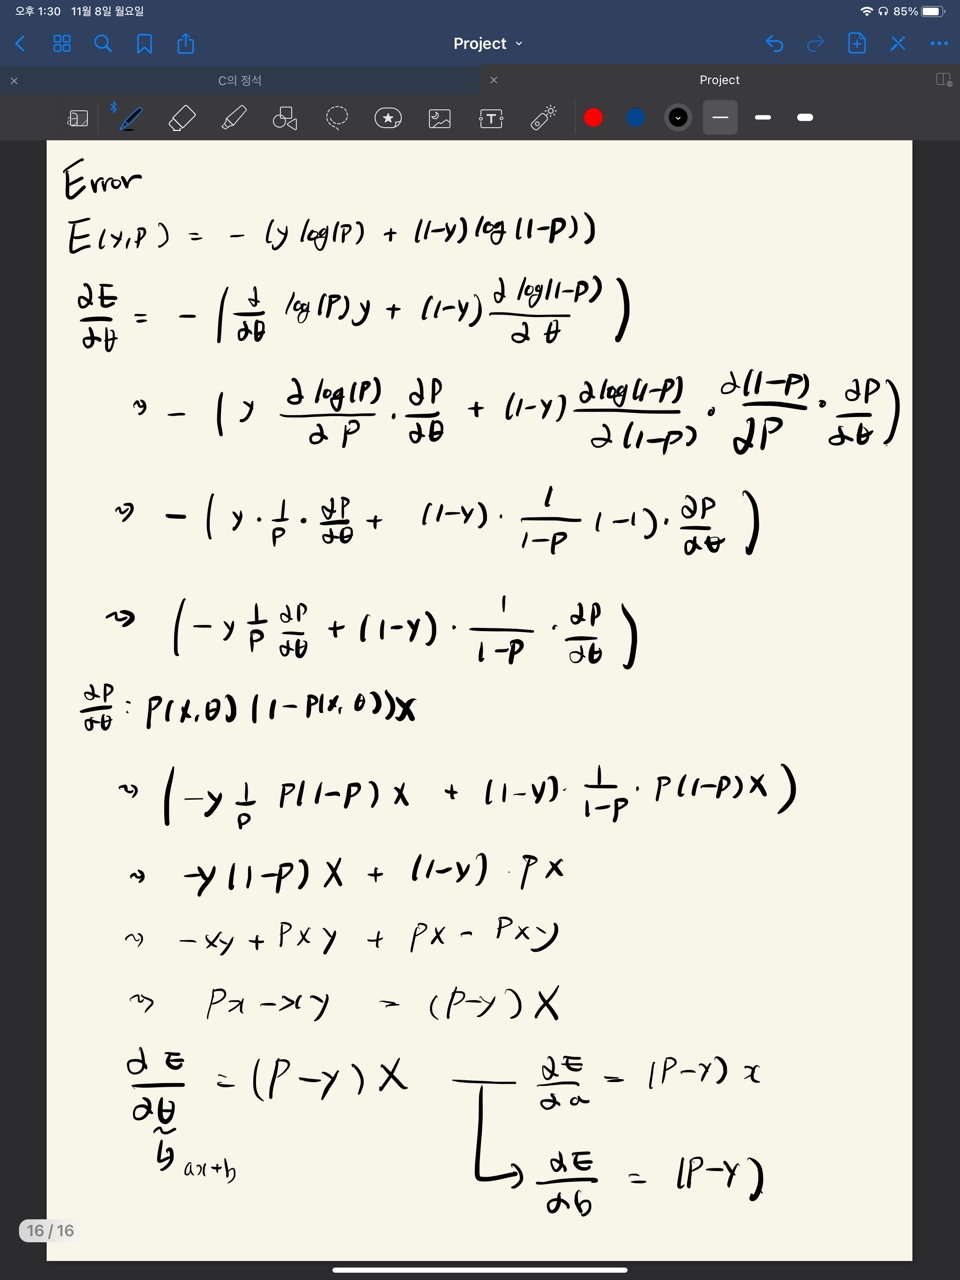 오후 1:30 11월 8일 월요일 85%
Project
C의 정석 Project
Error
E(y,P) = - (y log(P) + (1-y) log (1-P))
∂E/∂θ = - (∂/∂θ log(P) y + (1-y) ∂log(1-P)/∂θ)
⇝ - (y ∂log(P)/∂P · ∂P/∂θ + (1-y) ∂log(1-P)/∂(1-P) · ∂(1-P)/∂P · ∂P/∂θ)
⇝ - (y · 1/P · ∂P/∂θ + (1-y) · 1/1-P (-1) · ∂P/∂θ)
⇝ (-y 1/P ∂P/∂θ + (1-y) · 1/1-P · ∂P/∂θ)
∂P/∂θ : P(x,θ) (1-P(x,θ))X
⇝ (-y 1/P P(1-P) X + (1-y) · 1/1-P · P(1-P)X)
⇝ -y(1-P) X + (1-y) · PX
⇝ -xy + Pxy + PX - Pxy
⇝ Px - xy = (P-y) X
∂E/∂θ = (P-y) X ∂E/∂a = (P-y) x
ax+b ∂E/∂b = (P-y)
16 / 16